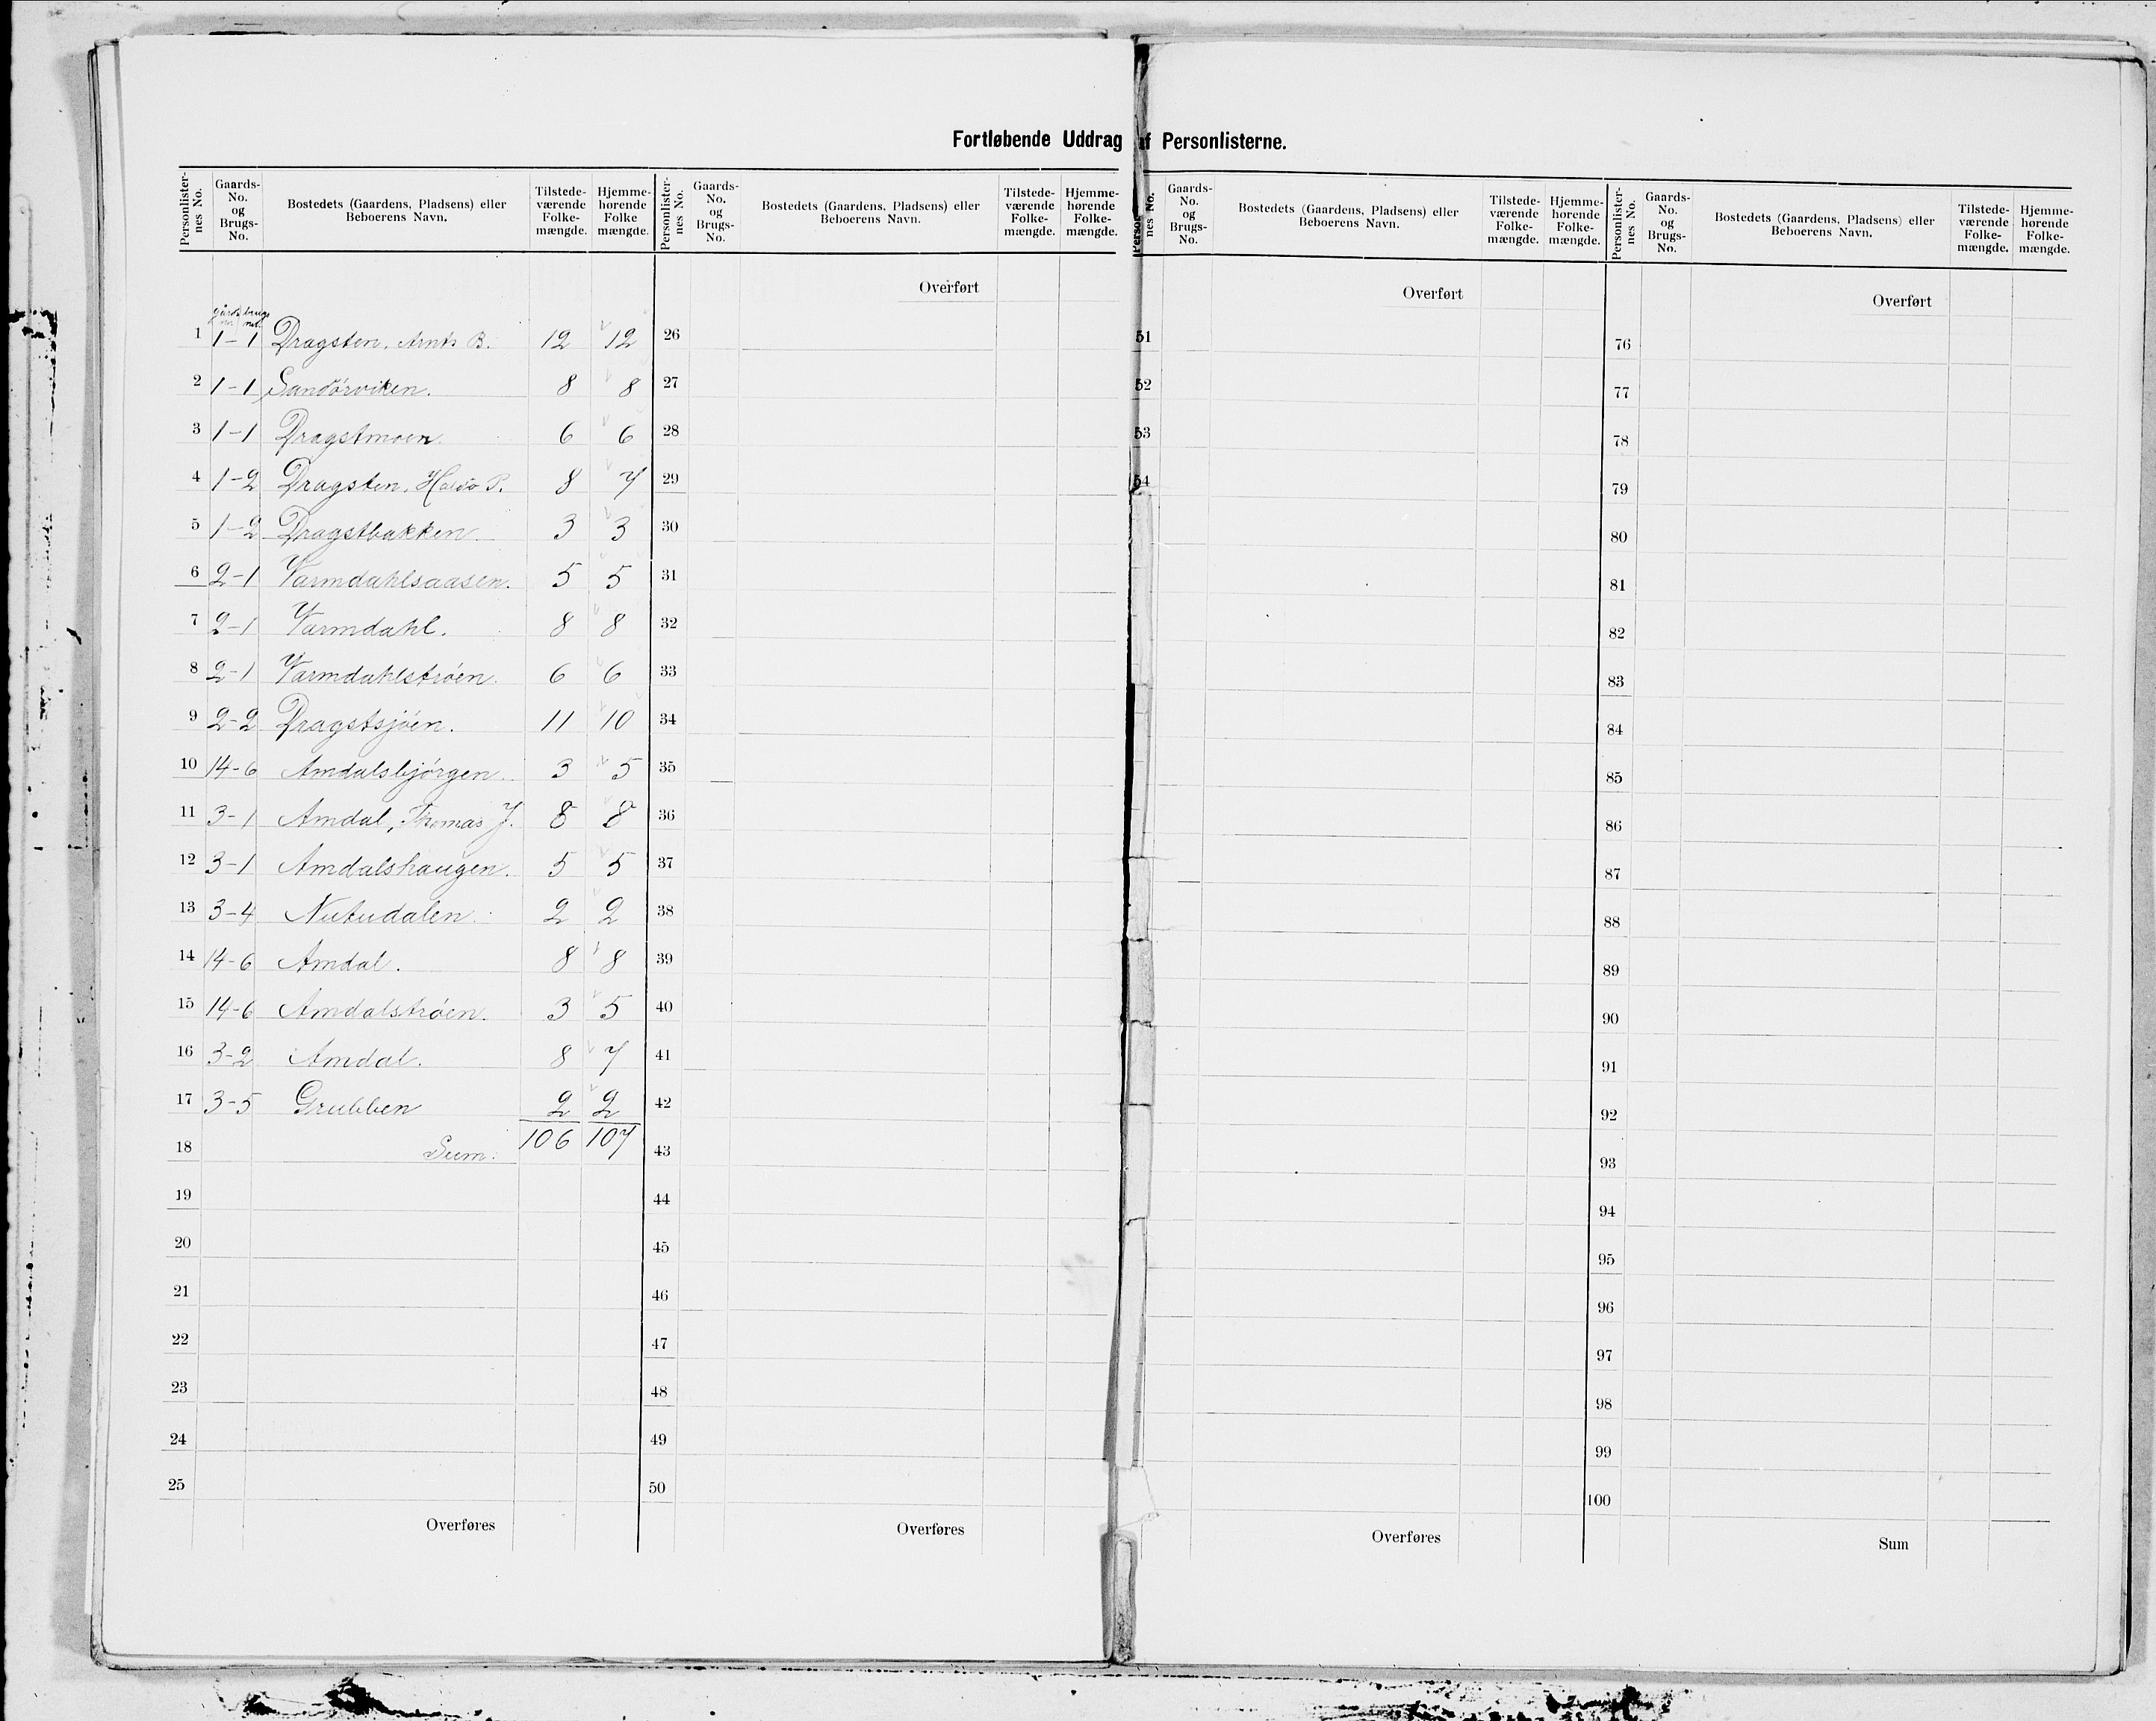 Fortløbende Uddrag af Personlisterne.
Personlister-nes No. Gaards-No. og Brugs-No. Bostedets (Gaardens, Pladsens) eller Beboerens Navn. Tilstede-værende Folke-mængde. Hjemme-hørende Folke mængde. Personlister-nes No. Gaards-No. og Brugs-No. Bostedets (Gaardens, Pladsens) eller Beboerens Navn. Tilstede-værende Folke-mængde. Hjemme-hørende Folke-mængde. nes No. Gaards-No. og Brugs-No. Bostedets (Gaardens, Pladsens) eller Beboerens Navn. Tilstede-værende Folke-mængde. Hjemme-hørende Folke-mængde. Personlister-nes No. Gaards-No. og Brugs-No. Bostedets (Gaardens, Pladsens) eller Beboerens Navn. Tilstede-værende Folke-mængde. Hjemme-hørende Folke-mængde.
Overført Overført Overført
1 1-1 Dragsten, B. 12 12 26 51 76
2 1-1 Sandörviken. 8 8 27 52 77
3 1-1 Dragstmoen 6 6 28 53 78
4 1-2 Dragsten, P. 8 7 29 54 79
5 1-2 Dragstbakken 3 3 30 80
6 2-1 Varmdahlsaasen. 5 5 31 81
7 2-1 Varmdahl. 8 8 32 82
8 2-1 Varmdahlströen. 6 6 33 83
9 2-2 Dragstsjöen. 11 10 34 84
10 14-6 Amdalsbjörgen. 3 5 35 85
11 3-1 Amdal, Thomas J. 8 8 36 86
12 3-1 Amdalshaugen. 5 5 37 87
13 3-4 Nutudalen. 2 2 38 88
14 14-6 Amdal. 8 8 39 89
15 14-6 Amdalströen. 3 5 40 90
16 3-2 Amdal. 8 7 41 91
17 3-5 Grubben 2 2 42 92
18 Sum: 106 107 43 93
19 44 94
20 45 95
21 46 96
22 47 97
23 48 98
24 49 99
25 50 100
Overføres Overføres Overføres Sum